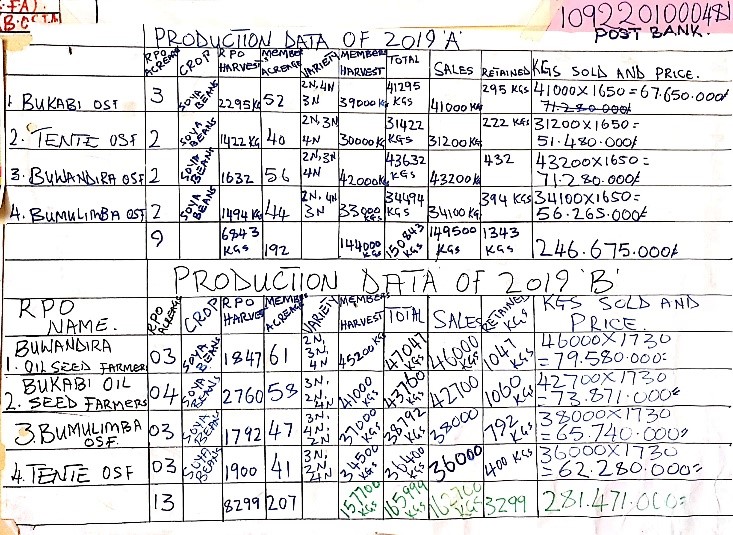 FA)
B.O
109220100048
POST BANK.
PRODUCTION DATA OF 2019 'A'
RPO ACREAGE CROP RPO HARVEST MEMBER ACREAGE VARIETY MEMBERS HARVEST TOTAL SALES RETAINED KGS SOLD AND PRICE.
1. BUKABI OSF 3 SOYA BEANS 2295KG 52 2N,4N 3N 39000KG 41295 KGS 41000KG 295 KGS 41000X1650=67.650.000/
71.280.000/
2. TENTE OSF 2 SOYA BEANS 1422KG 40 2N,3N 4N 30000KG 31422 KGS 31200KG 222 KGS 31200X1650=
51.480.000/
3. BUWANDIRA OSF 2 SOYA BEANS 1632 56 2N,3N 4N 42000KG 43632 KGS 43200KG 432 43200X1650=
71.280.000/
4. BUMULIMBA OSF 2 SOYA BEANS 1494KG 44 2N,4N 3N 33000KG 34494 KGS 34100KG 394 KGS 34100X1650=
56.265.000/
9 6843 KGS 192 144000 KGS 150843 KGS 149500 KGS 1343 KGS 246.675.000/
PRODUCTION DATA OF 2019 'B'
RPO NAME. RPO ACREAGE CROP RPO HARVEST MEMBER ACREAGE VARIETY MEMBERS HARVEST TOTAL SALES RETAINED KGS KGS SOLD AND PRICE.
BUWANDIRA
1. OIL SEED FARMERS 03 SOYA BEANS 1847 61 2N, 3N, 4N 45200KG 47047 KGS 46000 KGS 1047 KGS 46000X1730
=79.580.000=
BUKABI OIL
2. SEED FARMERS 04 SOYA BEANS 2760 58 3N, 2N, 4N 41000 KGS 43760 KGS 42700 1060 KGS 42700X1730
=73.871.000=
3. BUMULIMBA OSF. 03 SOYA BEANS 1792 47 3N, 4N, 2N 37000 KGS 38792 KGS 38000 792 KGS 38000X1730
=65.740.000=
4. TENTE OSF 03 SOYA BEANS 1900 41 3N, 2N, 4N 34500 KGS 36400 KGS 36000 400 KGS 36000X1730
=62.280.000=
13 8299 207 157700 KGS 165999 KGS 162700 KGS 3299 281.471.000=